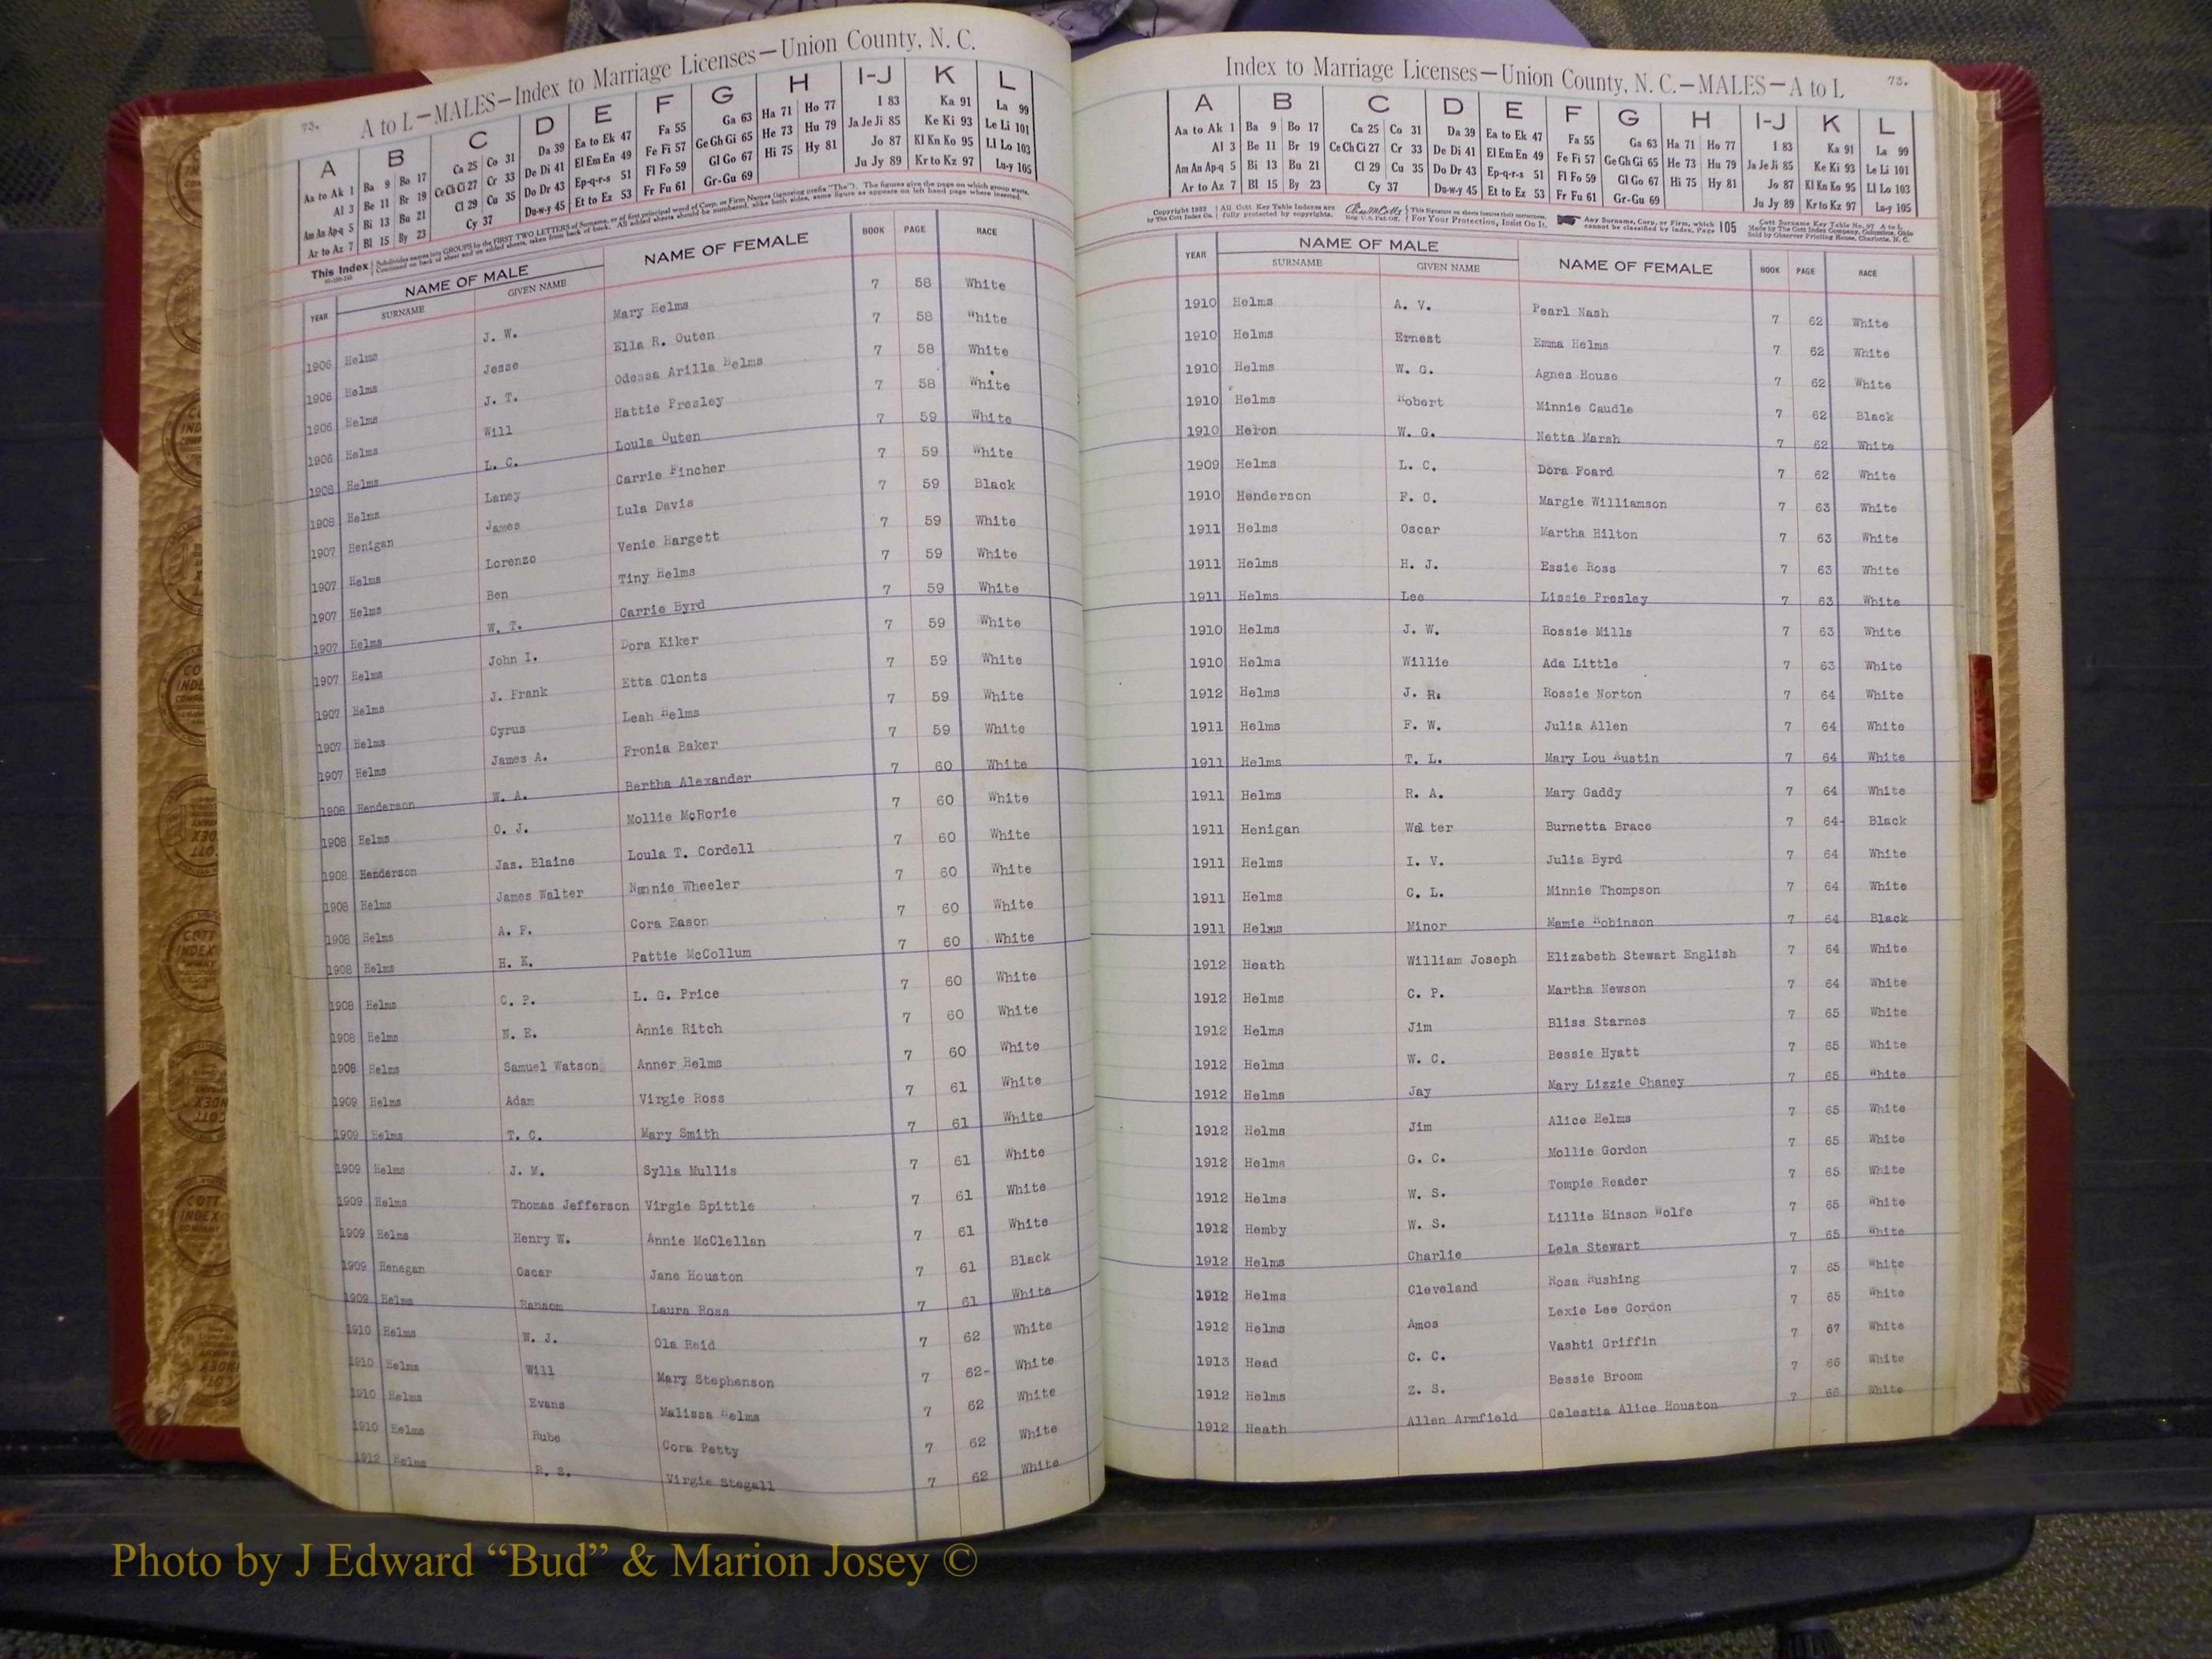 A to L—MALES—Index to Marriage Licenses—Union County, N. C.
73.
A B C D E F G H I-J K L
Aa to Ak 1 Ba 9 Bo 17 Ca 25 Co 31 Da 39 Ea to Ek 47 Fa 55 Ga 63 Ha 71 Ho 77 I 83 Ka 91 La 99
Al 3 Be 11 Br 19 Ce Ch Ci 27 Cr 33 De Di 41 El Em En 49 Fe Fi 57 Ge Gh Gi 65 He 73 Hu 79 Ja Je Ji 85 Ke Ki 93 Le Li 101
Am An Ap-q 5 Bi 13 Bu 21 Cl 29 Cu 35 Do Dr 43 Ep-q-r-s 51 Fl Fo 59 Gl Go 67 Hi 75 Hy 81 Jo 87 Kl Kn Ko 95 Ll Lo 103
Ar to Az 7 Bl 15 By 23 Cy 37 Du-w-y 45 Et to Ez 53 Fr Fu 61 Gr-Gu 69 Ju Jy 89 Kr to Kz 97 Lu-y 105
This Index Subdivides names into GROUPS by the FIRST TWO LETTERS of Surname, or of first principal word of Corp. or Firm Names (ignoring prefix "The"). The figures give the page on which group starts.
Continued on back of sheet and on added sheets, taken from back of book. All added sheets should be numbered, alike both sides, same figure as appears on left hand page where inserted.
YEAR NAME OF MALE NAME OF FEMALE BOOK PAGE RACE
SURNAME GIVEN NAME
1906 Helms J. W. Mary Helms 7 58 White
1906 Helms Jesse Ella R. Outen 7 58 White
1906 Helms J. T. Odessa Arilla Helms 7 58 White
1906 Helms Will Hattie Presley 7 58 White
1908 Helms L. C. Loula Outen 7 59 White
1908 Helms Laney Carrie Fincher 7 59 White
1907 Henigan James Lula Davis 7 59 Black
1907 Helms Lorenzo Venie Hargett 7 59 White
1907 Helms Ben Tiny Helms 7 59 White
1907 Helms W. T. Carrie Byrd 7 59 White
1907 Helms John I. Dora Kiker 7 59 White
1907 Helms J. Frank Etta Clonts 7 59 White
1907 Helms Cyrus Leah Helms 7 59 White
1907 Helms James A. Fronia Baker 7 59 White
1908 Henderson W. A. Bertha Alexander 7 60 White
1908 Helms O. J. Mollie McRorie 7 60 White
1908 Henderson Jas. Blaine Loula T. Cordell 7 60 White
1908 Helms James Walter Nannie Wheeler 7 60 White
1908 Helms A. F. Cora Eason 7 60 White
1908 Helms H. K. Pattie McCollum 7 60 White
1908 Helms C. P. L. G. Price 7 60 White
1908 Helms N. E. Annie Ritch 7 60 White
1908 Helms Samuel Watson Anner Helms 7 60 White
1909 Helms Adam Virgie Ross 7 61 White
1909 Helms T. C. Mary Smith 7 61 White
1909 Helms J. M. Sylla Mullis 7 61 White
1909 Helms Thomas Jefferson Virgie Spittle 7 61 White
1909 Helms Henry W. Annie McClellan 7 61 White
1909 Henegan Oscar Jane Houston 7 61 Black
1909 Helms Ransom Laura Ross 7 61 White
1910 Helms W. J. Ola Reid 7 62 White
1910 Helms Will Mary Stephenson 7 62- White
1910 Helms Evans Malissa Helms 7 62 White
1910 Helms Rube Cora Petty 7 62 White
1912 Helms R. S. Virgie Stegall 7 62 White
Index to Marriage Licenses—Union County, N. C.—MALES—A to L
73.
A B C D E F G H I-J K L
Aa to Ak 1 Ba 9 Bo 17 Ca 25 Co 31 Da 39 Ea to Ek 47 Fa 55 Ga 63 Ha 71 Ho 77 I 83 Ka 91 La 99
Al 3 Be 11 Br 19 Ce Ch Ci 27 Cr 33 De Di 41 El Em En 49 Fe Fi 57 Ge Gh Gi 65 He 73 Hu 79 Ja Je Ji 85 Ke Ki 93 Le Li 101
Am An Ap-q 5 Bi 13 Bu 21 Cl 29 Cu 35 Do Dr 43 Ep-q-r-s 51 Fl Fo 59 Gl Go 67 Hi 75 Hy 81 Jo 87 Kl Kn Ko 95 Ll Lo 103
Ar to Az 7 Bl 15 By 23 Cy 37 Du-w-y 45 Et to Ez 53 Fr Fu 61 Gr-Gu 69 Ju Jy 89 Kr to Kz 97 Lu-y 105
Copyright 1922 by The Cott Index Co. All Cott Key Table Indexes are fully protected by copyrights. Reg. U.S. Pat. Off. This Signature on sheets insures their correctness. For Your Protection, Insist On It. Any Surname, Corp. or Firm, which cannot be classified by Index, Page 105 Cott Surname Key Table No. 97 A to L Made by The Cott Index Company, Columbus, Ohio Sold by Observer Printing House, Charlotte, N. C.
YEAR NAME OF MALE NAME OF FEMALE BOOK PAGE RACE
SURNAME GIVEN NAME
1910 Helms A. V. Pearl Nash 7 62 White
1910 Helms Ernest Emma Helms 7 62 White
1910 Helms W. G. Agnes House 7 62 White
1910 Helms Robert Minnie Caudle 7 62 Black
1910 Heron W. G. Netta Marsh 7 62 White
1909 Helms L. C. Dora Foard 7 62 White
1910 Henderson F. G. Margie Williamson 7 63 White
1911 Helms Oscar Martha Hilton 7 63 White
1911 Helms H. J. Essie Ross 7 63 White
1911 Helms Lee Lissie Presley 7 63 White
1910 Helms J. W. Rossie Mills 7 63 White
1910 Helms Willie Ada Little 7 63 White
1912 Helms J. R. Rossie Norton 7 64 White
1911 Helms F. W. Julia Allen 7 64 White
1911 Helms T. L. Mary Lou Austin 7 64 White
1911 Helms R. A. Mary Gaddy 7 64 White
1911 Henigan Walter Burnetta Brace 7 64- Black
1911 Helms I. V. Julia Byrd 7 64 White
1911 Helms C. L. Minnie Thompson 7 64 White
1911 Helms Minor Mamie Robinson 7 64 Black
1912 Heath William Joseph Elizabeth Stewart English 7 64 White
1912 Helms C. P. Martha Newson 7 64 White
1912 Helms Jim Bliss Starnes 7 65 White
1912 Helms W. C. Bessie Hyatt 7 65 White
1912 Helms Jay Mary Lizzie Chaney 7 65 White
1912 Helms Jim Alice Helms 7 65 White
1912 Helms G. C. Mollie Gordon 7 65 White
1912 Helms W. S. Tompie Reader 7 65 White
1912 Hemby W. S. Lillie Hinson Wolfe 7 65 White
1912 Helms Charlie Lela Stewart 7 65 White
1912 Helms Cleveland Rosa Rushing 7 65 White
1912 Helms Amos Lexie Lee Gordon 7 65 White
1913 Head C. C. Vashti Griffin 7 67 White
1912 Helms Z. S. Bessie Broom 7 66 White
1912 Heath Allen Armfield Celestia Alice Houston 7 66 White
Photo by J Edward “Bud” & Marion Josey ©